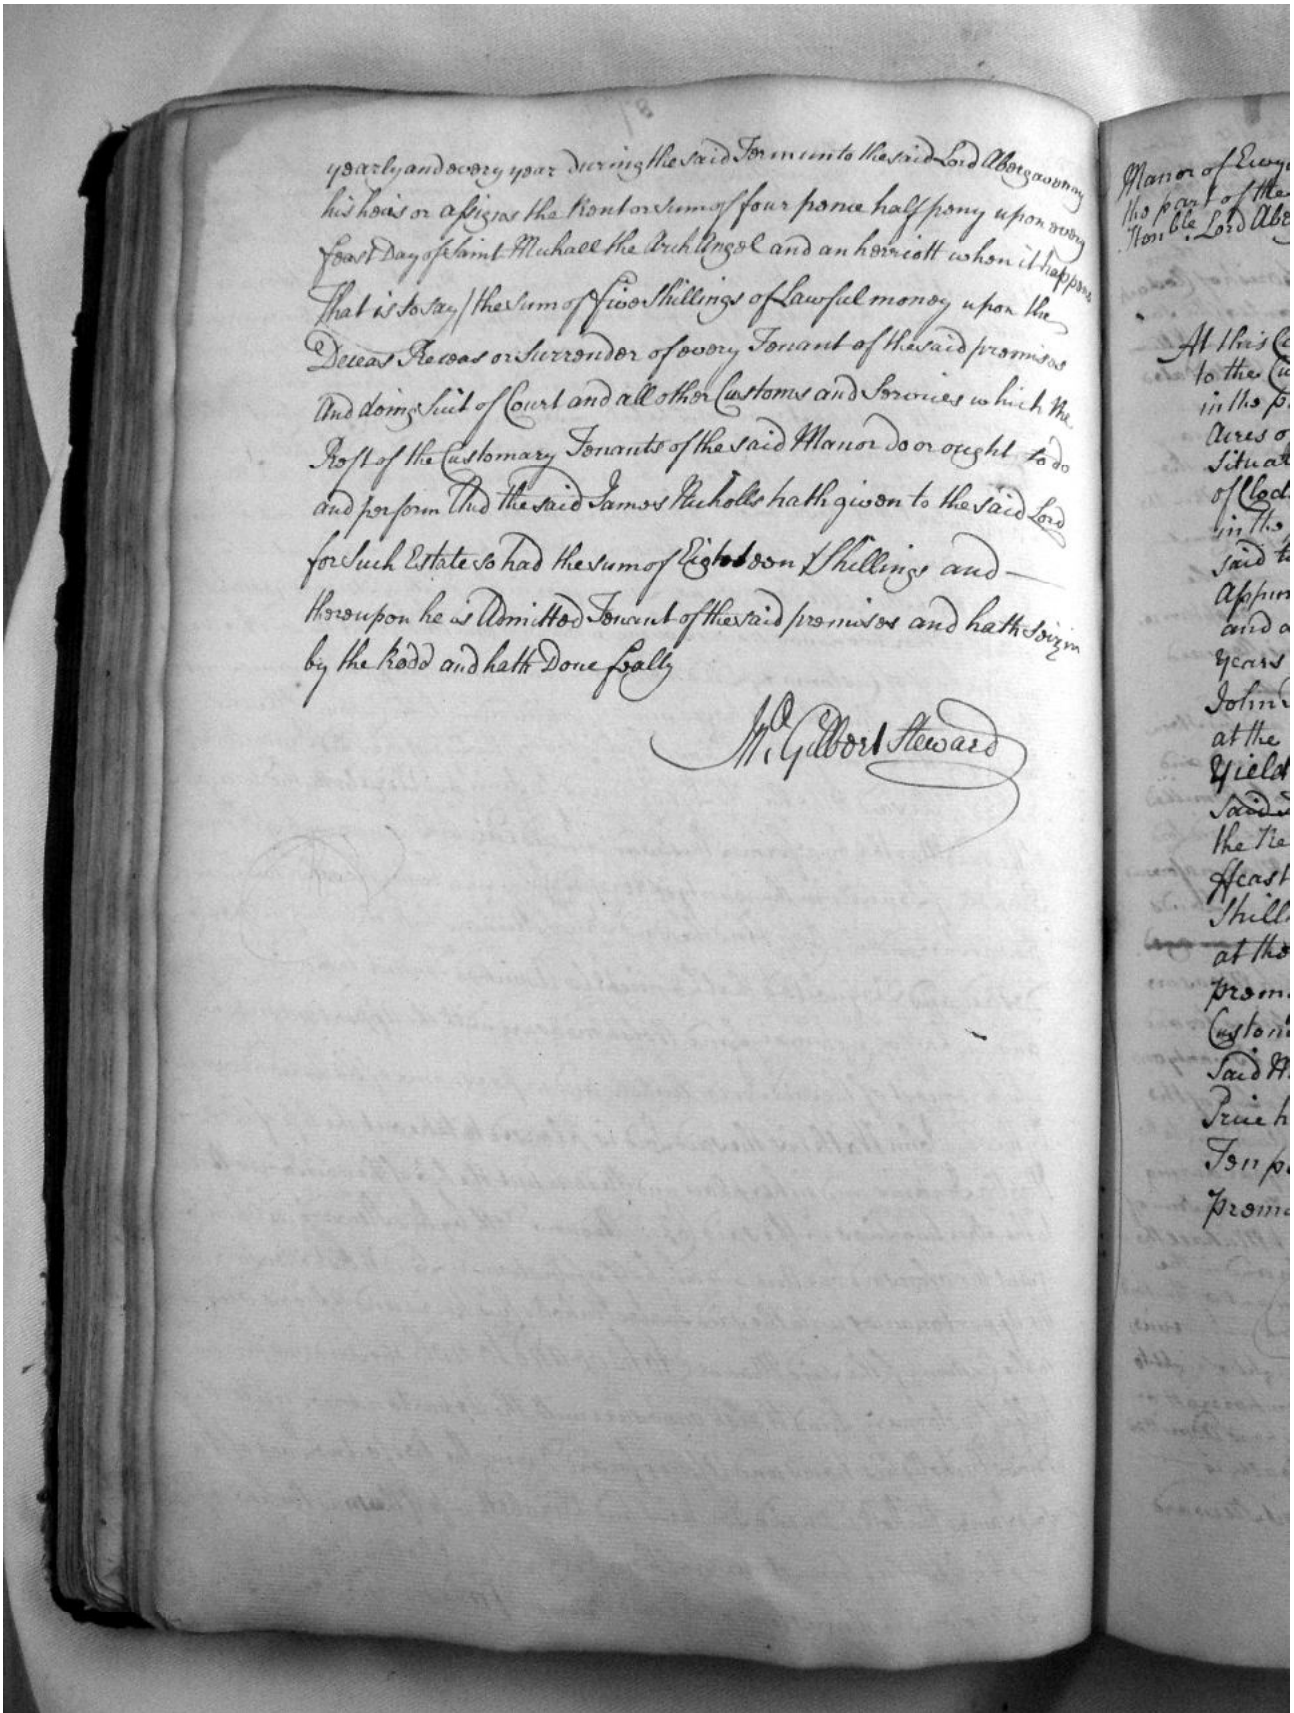 yearly and every year During the said Term unto the said Lord Abergavenny
his heirs or assigns the Rent or sum of four pence half peny upon every
feast Day of Saint Michaell the Arch Angel and an herriott when it happens
That is to say / the sum of five Shillings of Lawful money upon the
Deceas Receas or Surrender of every Tenant of the said premises
And doing Suit of Court and all other Customs and Services which the
Rest of the Customary Tenants of the said Manor do or ought to do
and perform And the said James Nicholls hath given to the said Lord
for Such Estate so had the sum of Eighteen Shillings and —
thereupon he is Admitted Tenant of the said premises and hath Seizin
by the Rodd and hath Done fealty
Gilbert Steward
Manor of
the part of the
Honble Lord
At this
to the
in the
Acres of
Situat
of
in the
said
Appur
and a
years
John
at the
Yield
said
the
ffeast
Shill
at the
prem
Custom
Said
Price h
Ten p
prem